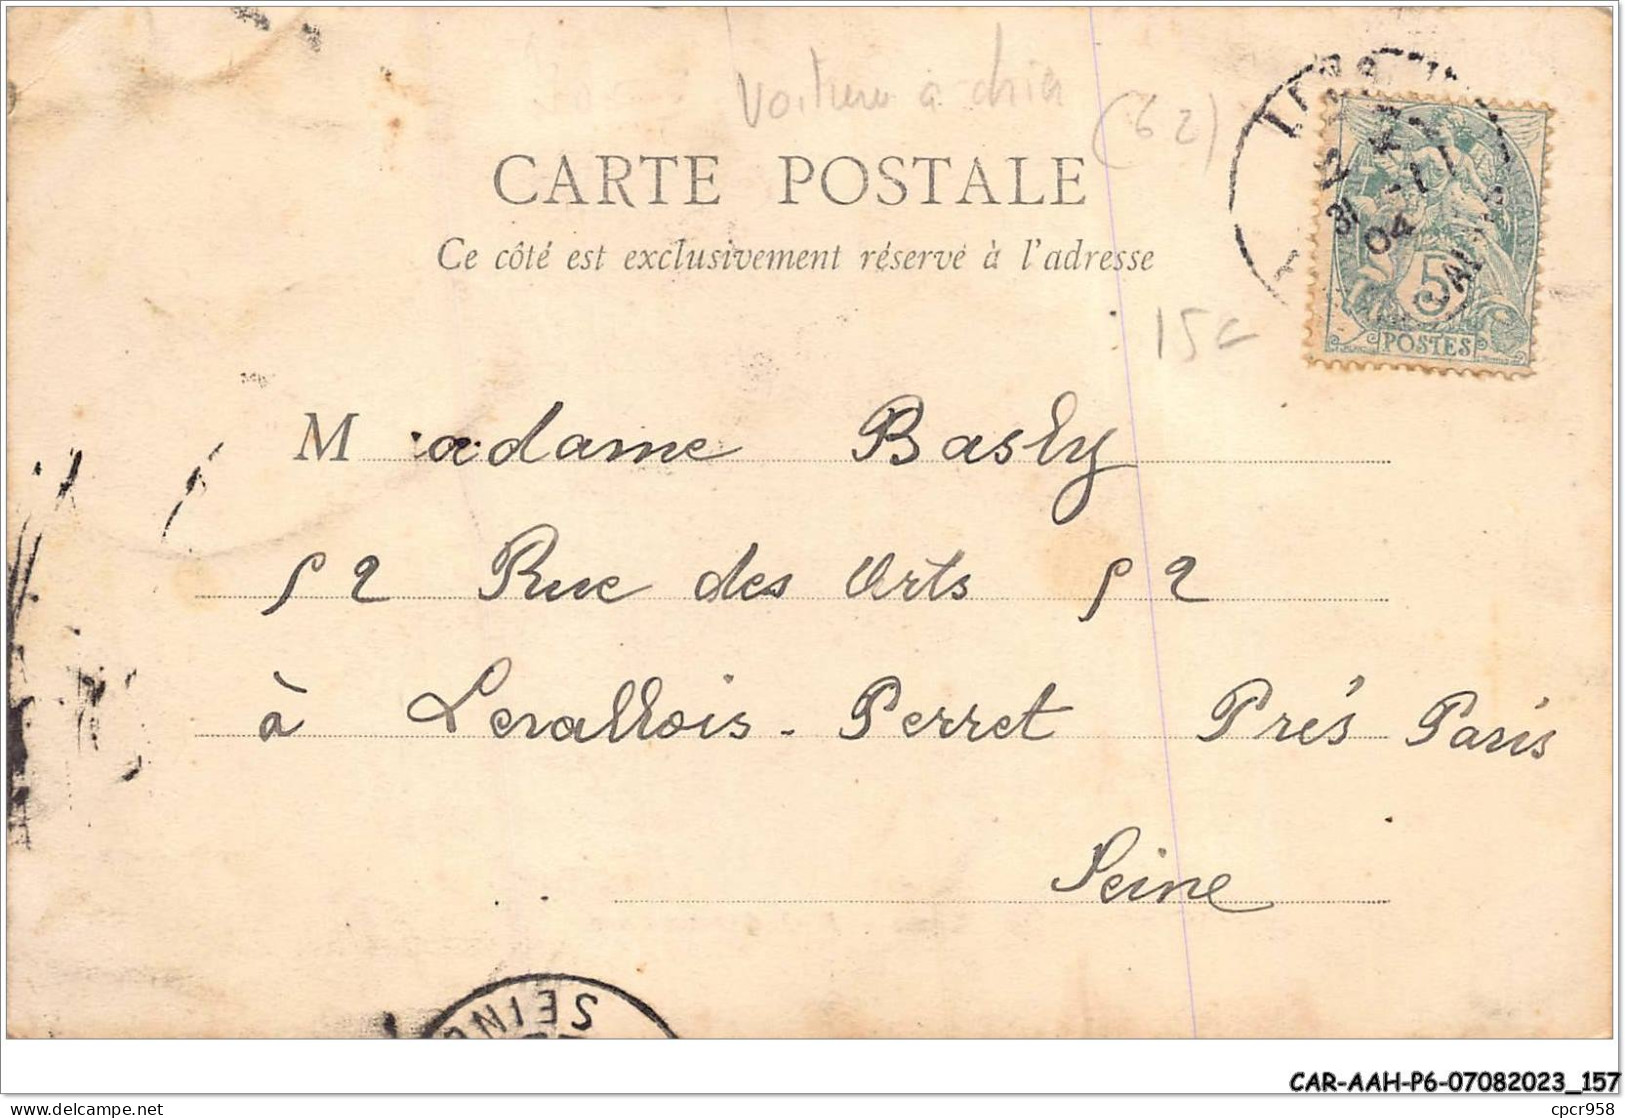 voiture à chien
(62)
CARTE POSTALE
Ce côté est exclusivement réservé à l'adresse
04
5
POSTES
15c
Madame Basly
52 Rue des Arts 52
à Levallois-Perret Prés Paris
Seine
SEINE
CAR-AAH-P6-07082023_157
delcampe.net
cpcr958